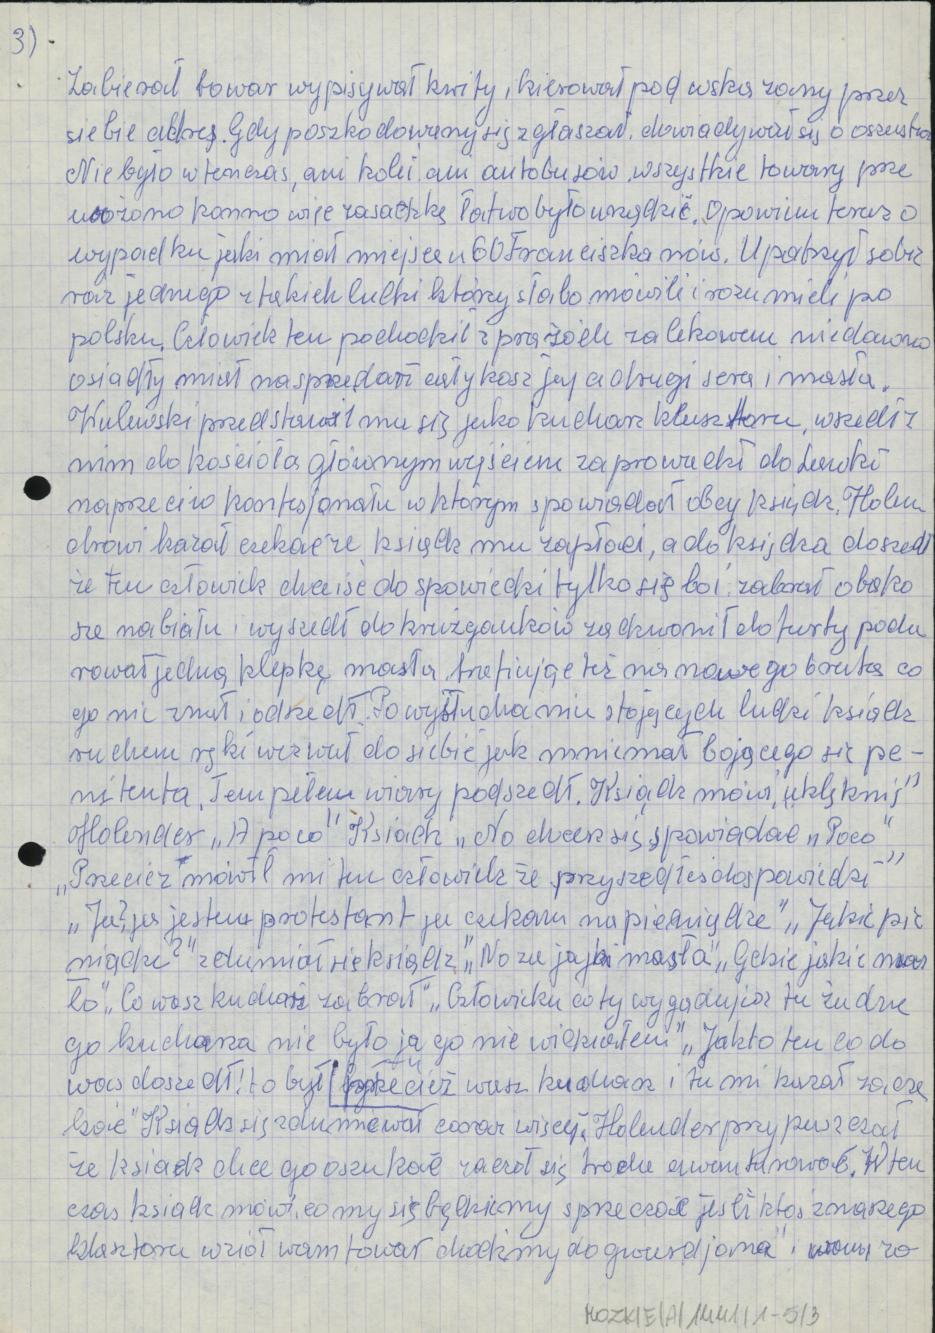 3)
Zabierał towar wypisywał kwity, kierował pod wskazany przez
siebie adres. Gdy poszkodowany się zgłaszał, dowiadywał się o oszustwie
Nie było wtenczas, ani kolei, ani autobusów, wszystkie towary prze
wożono konno więc zasadzkę łatwo było urządzić. Opowiem teraz o
wypadku jaki miał miejsce u OO Franciszkanów. Upatrzył sobie
raz jednego z takich ludzi którzy słabo mówili i rozumieli po
polsku. Człowiek ten pochodził z prażóch za Lekowem niedawno
osiadły miał na sprzedaż cały kosz jej a drugi sera i masła.
Kulewski przedstawił mu się jako kucharz klasztoru, wszedł z
nim do kościoła głównym wejściem zaprowadził do ławki
naprzeciw konfesjonału w którym spowiadał obcy ksiądz. Holen
drowi kazał czekać że ksiądz mu zapłaci, a do księdza doszedł
że ten człowiek chce iść do spowiedzi tylko się boi. zabrał oba ko
sze nabiału i wyszedł do krużganków zadzwonił do furty poda
rował jedną klepkę masła, trafiając też na nowego bratka co
go nie znał i odszedł. Po wysłuchaniu stojących ludzi ksiądz
ruchem ręki wezwał do siebie jak mniemał bojącego się pe-
nitenta, Ten pełen wiary podszedł. Ksiądz mówi „uklęknij”
Holender „A poco” Ksiądz „No chcesz się spowiadać „Poco”
„Przecież mówił mi ten człowiek że przyszedłeś do spowiedzi”
„Ja? ja jestem protestant ja czekam na pieniądze” „Jakie pie
niądze?” zdumiał się ksiądz „No za jaja masła” „Gdzie jakie mas
ło” „Co wasz kucharz zabrał” „Człowieku co ty wygadujesz tu żadne
go kucharza nie było ja go nie widziałem” „Jakto ten co do
was doszedł! to był przecież wasz kucharz i tu mi kazał zacze
kać” Ksiądz się zdumiewał coraz więcej. Holender przypuszczał
że ksiądz chce go oszukać zaczął się trochę awanturować. W ten
czas ksiądz mówi, co my się będziemy sprzeczać jeśli ktoś z naszego
klasztoru wziął wam towar chodźmy do gwardjana” i
MOZK/E/A/1441/1-5/3